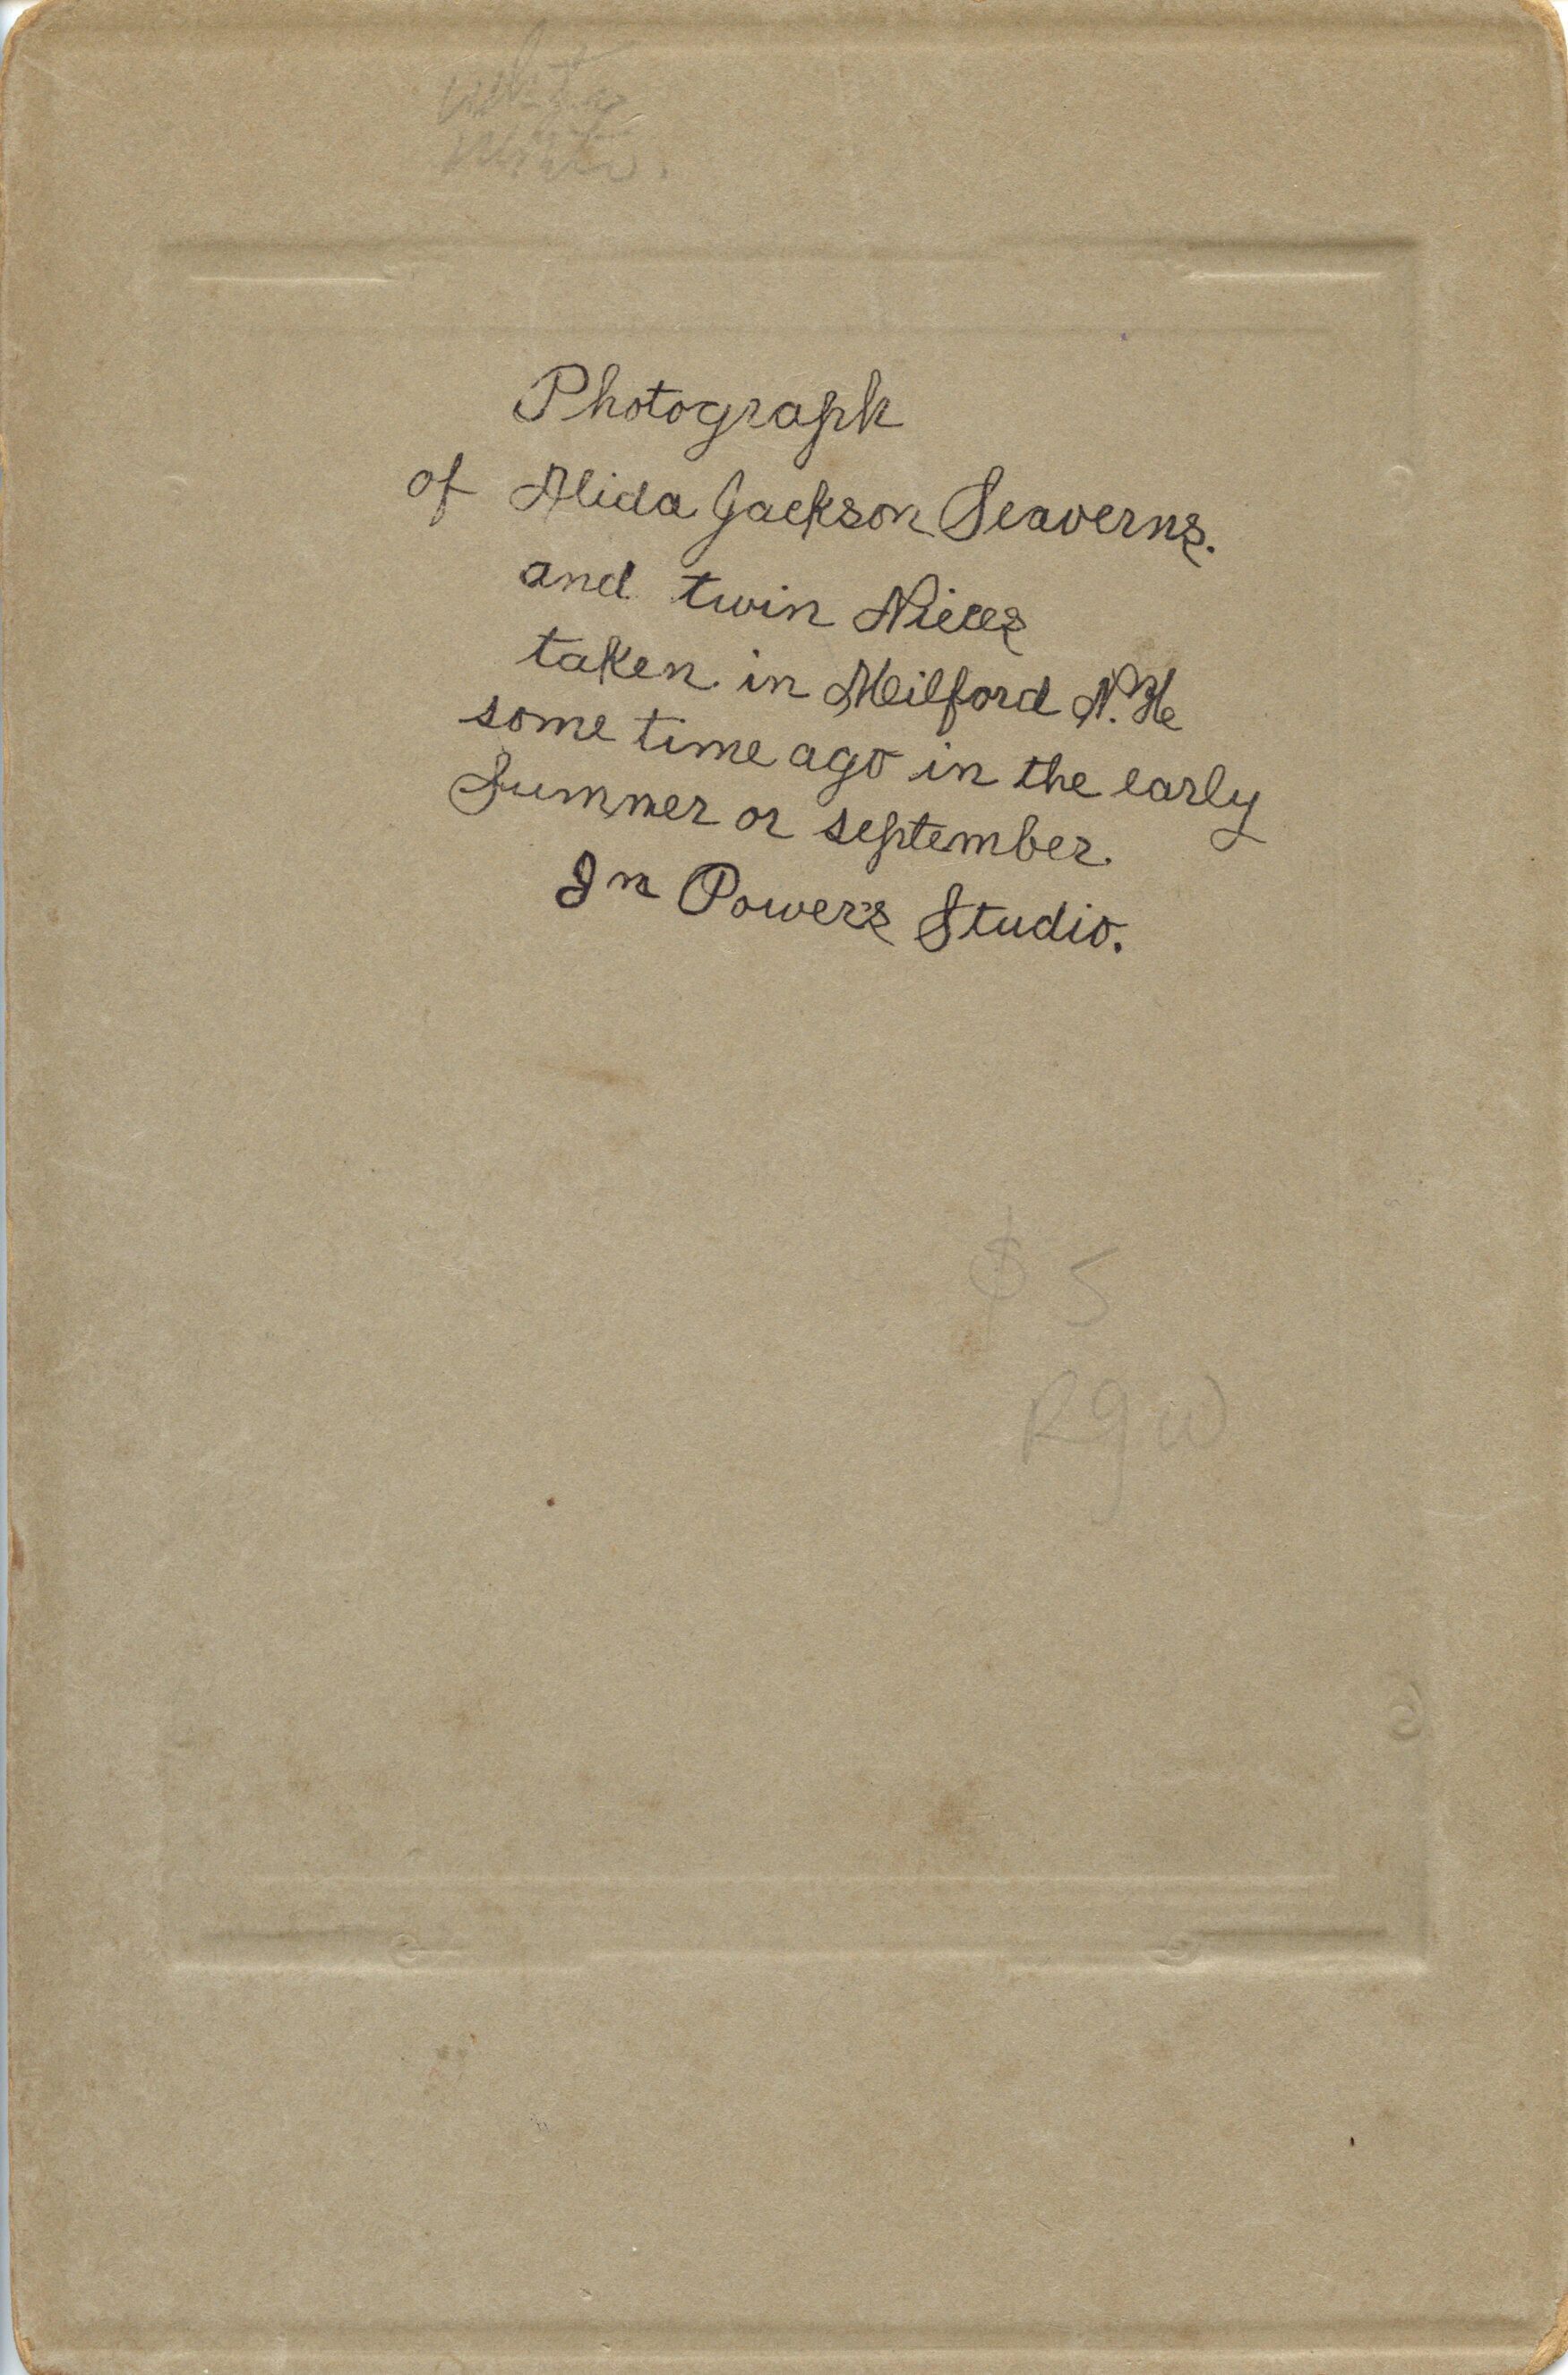 Photograph
of Alida Jackson Seaverns.
and twin Nieces
taken in Milford N.H
some time ago in the early
Summer or september.
In Powers Studio.
$5
RGW